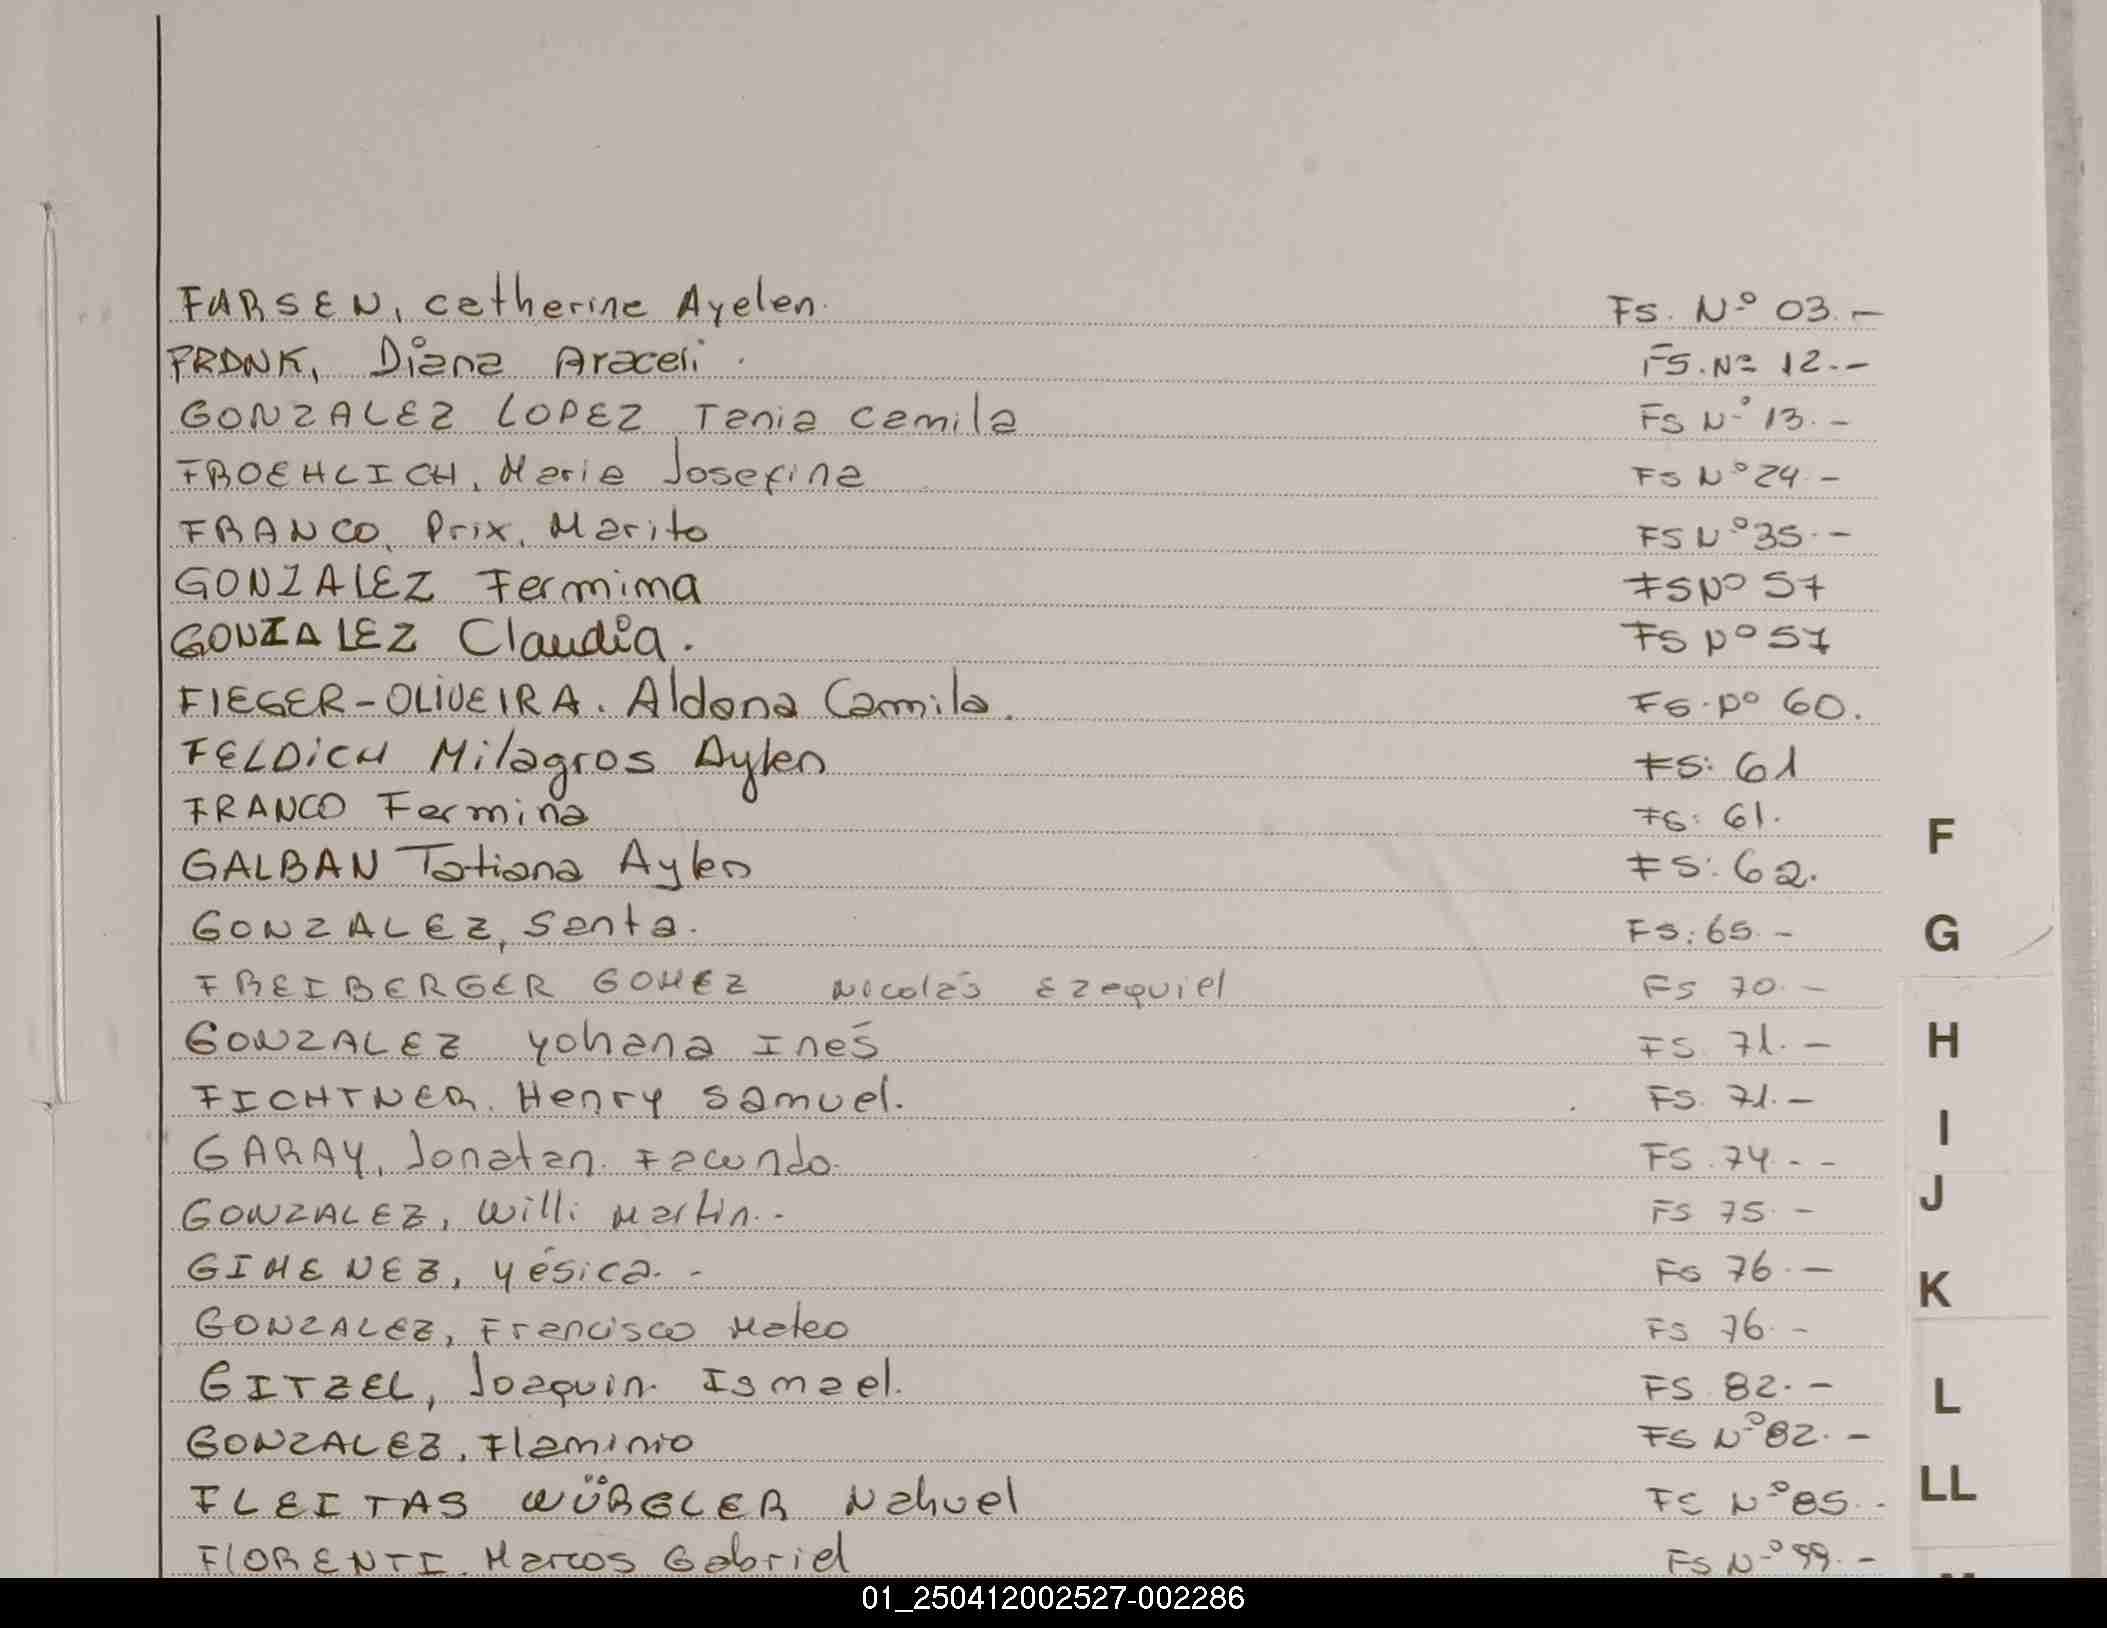 FARSEN, Catherine Ayelen. Fs. Nº 03.-
FRANK, Diana Araceli. FS. Nº 12.-
GONZALEZ LOPEZ Tania Camila Fs Nº 13.-
FROEHLICH, Maria Josefina FS Nº 24.-
FRANCO, Prix, Marito FS Nº 35.-
GONZALEZ Fermima FS Nº 57
GONZALEZ Claudia. FS Nº 57
FIEGER-OLIVEIRA. Aldana Camila. FS. Nº 60.
FELDICH Milagros Aylen FS: 61
FRANCO Fermina FS: 61.
GALBAN Tatiana Aylen FS: 62.
GONZALEZ, Santa. FS: 65.-
FREIBERGER GOMEZ Nicolás Ezequiel Fs 70.-
GONZALEZ Yohana Inés FS. 71.-
FICHTNER. Henry Samuel. FS. 71.-
GARAY, Jonatan. Facundo. FS. 74.--
GONZALEZ, Willi Martin.- FS 75.-
GIMENEZ, Yésica.- FS 76.-
GONZALEZ, Francisco Mateo FS 76.-
GITZEL, Joaquin. Ismael. FS. 82.-
GONZALEZ, Flaminio FS Nº 82.-
FLEITAS WÜRGLER Nahuel FS Nº 85.-
FlORENTI. Marcos Gabriel FS Nº 99.-
F
G
H
I
J
K
L
LL
01_250412002527-002286